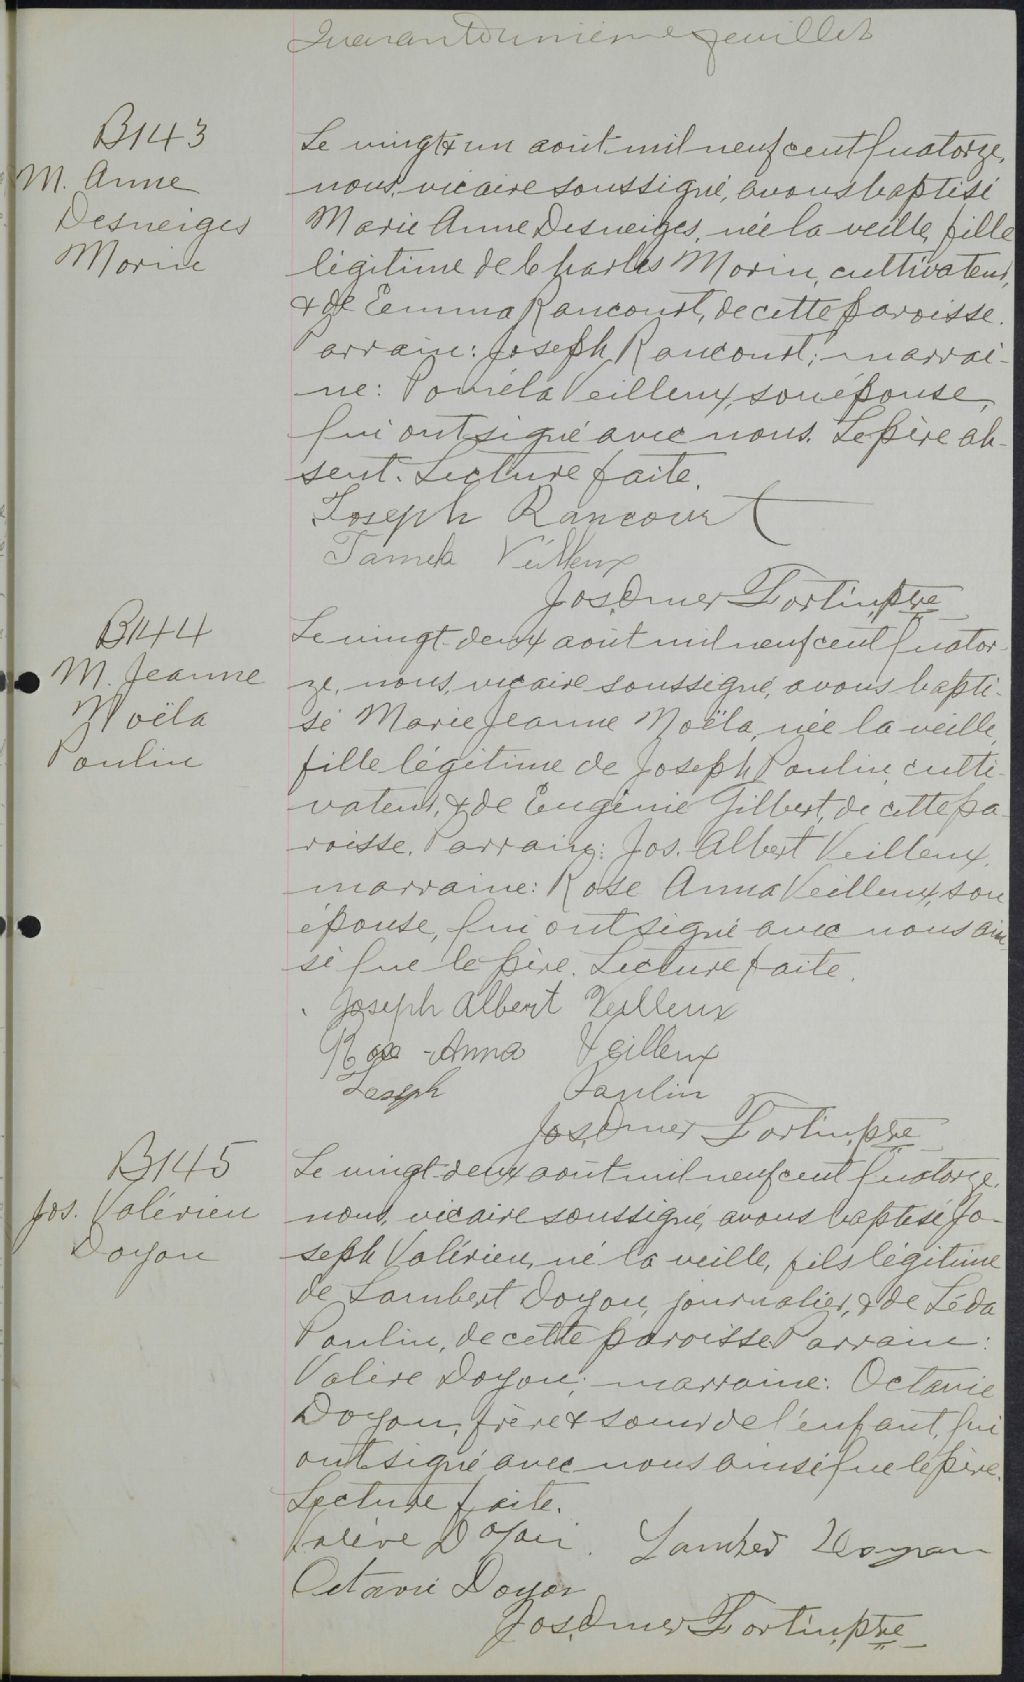 Quarantunième feuillet
B143
M. Anne
Desneiges
Morin
Le vingt & un août mil neuf cent quatorze,
nous, vicaire soussigné, avons baptisé
Marie Anne Desneiges, née la veille, fille
légitime de Charles Morin, cultivateur,
& de Emma Rancourt, de cette paroisse.
Parrain: Joseph Rancourt; marrai-
ne: Paméla Veilleux, son épouse,
qui ont signé avec nous. Le père ab-
sent. Lecture faite.
Joseph Rancourt
Pamela Veilleux
Jos. Omer Fortin, ptre
B144
M. Jeanne
Noëla
Poulin
Le vingt-deux août mil neuf cent quator-
ze, nous, vicaire soussigné, avons bapti-
sé Marie Jeanne Noëla, née la veille,
fille légitime de Joseph Poulin, culti-
vateur, & de Eugénie Gilbert, de cette pa-
roisse. Parrain: Jos. Albert Veilleux,
marraine: Rose Anna Veilleux, son
épouse, qui ont signé avec nous ain
si que le père. Lecture faite.
Joseph Albert Veilleux
Rose-Anna Veilleux
Joseph Poulin
Jos. Omer Fortin, ptre
B145
Jos. Valérien
Doyon
Le vingt-deux août mil neuf cent quatorze,
nous, vicaire soussigné, avons baptisé Jo-
seph Valérien, né la veille, fils légitime
de Lambert Doyon, journalier, & de Léda
Poulin, de cette paroisse. Parrain:
Valère Doyon; marraine: Octavie
Doyon, frère & soeur de l'enfant, qui
ont signé avec nous ainsi que le père.
Lecture faite.
Valère Doyon. Lamber Doyon
Octavie Doyon
Jos. Omer Fortin, ptre